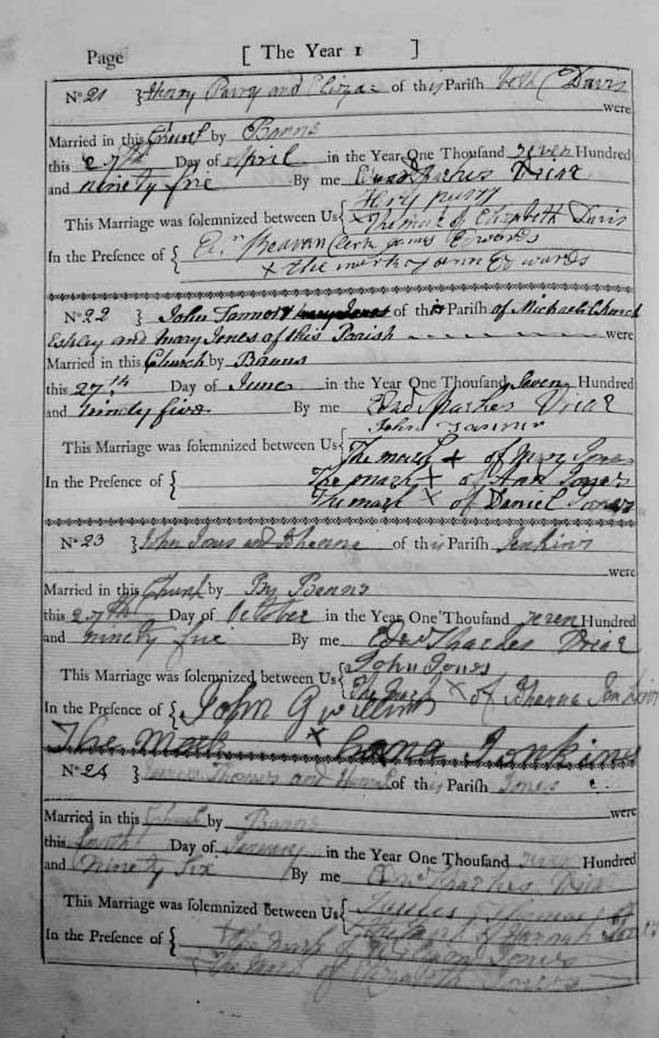 Page [ The Year 1 ]
No 21 } Henry Parry and Eliza= of this Parish both ( Davis
were
Married in this Church by Banns
this 27th Day of April in the Year One Thousand seven Hundred
and ninety five By me Edwd Sharkes Vicar
This Marriage was solemnized between Us { Hery purry
x The mark of Elizabeth Davis
In the Presence of { Beavan Clerk James Edwards
x the mark of ann Edwards
No 22 John Tanner & Mary Jones of this Parish of Michael Church
Eskley and Mary Jones of this Parish were
Married in this Church by Banns
this 27th Day of June in the Year One Thousand Seven Hundred
and Ninety five By me Edw Sharkes Vicar
John Tanner
This Marriage was solemnized between Us { The mark + of Mary Jones
In the Presence of { The mark + of Ann Jones
The mark x of Daniel Jones
No 23 } John Jones and Joheanne of this Parish Jenkins
were
Married in this Church by By Banns
this 27th Day of October in the Year One Thousand seven Hundred
and ninety five By me Edw Sharkes Vicar
This Marriage was solemnized between Us { John Jones
The Mark x of Johanna Jenkins
In the Presence of { John Gwillim
The Mark x hana Jenkins
No 24 } James Thomas and Hannah of this Parish Jones
were
Married in this Church by Banns
this fourth Day of January in the Year One Thousand seven Hundred
and Ninety Six By me Edw Sharkes Vicar
This Marriage was solemnized between Us { James Thomas
The mark of Hannah Jones
In the Presence of { + the mark of William Jones
The mark of Elizabeth Jones